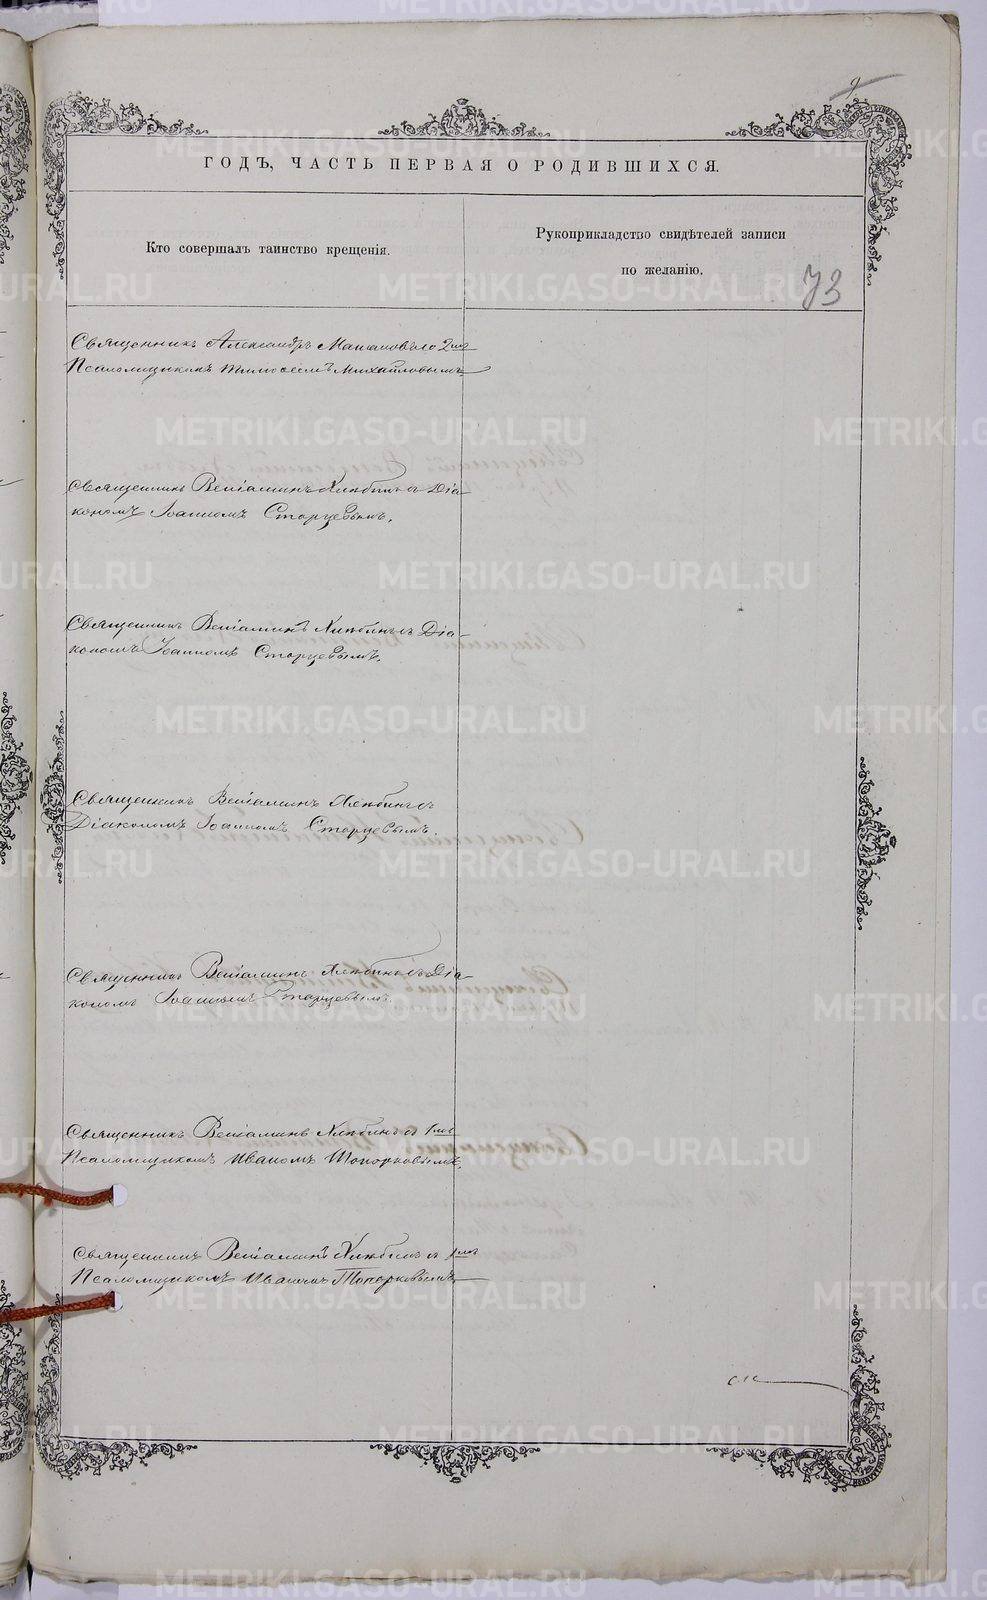 9
ГОДЪ, ЧАСТЬ ПЕРВАЯ О РОДИВШИХСЯ.
Кто совершалъ таинство крещенія.
Рукоприкладство свидѣтелей записи
по желанію.
73
Священникъ Александръ съ 2мъ
Псаломщикомъ Тимоѳеемъ Михайловымъ
Священникъ Веніаминъ Хлѣбинъ съ Діа-
кономъ Іоанномъ Старцевымъ.
Священникъ Веніаминъ Хлѣбинъ съ Діа-
кономъ Іоанномъ Старцевымъ.
Священникъ Веніаминъ Хлѣбинъ съ
Діакономъ Іоанномъ Старцевымъ.
Священникъ Веніаминъ Хлѣбинъ съ Діа-
кономъ Іоанномъ Старцевымъ.
Священникъ Веніаминъ Хлѣбинъ съ 1мъ
Псаломщикомъ Иваномъ Топорковымъ.
Священникъ Веніаминъ Хлѣбинъ съ 1мъ
Псаломщикомъ Иваномъ Топорковымъ
METRIKI.GASO-URAL.RU